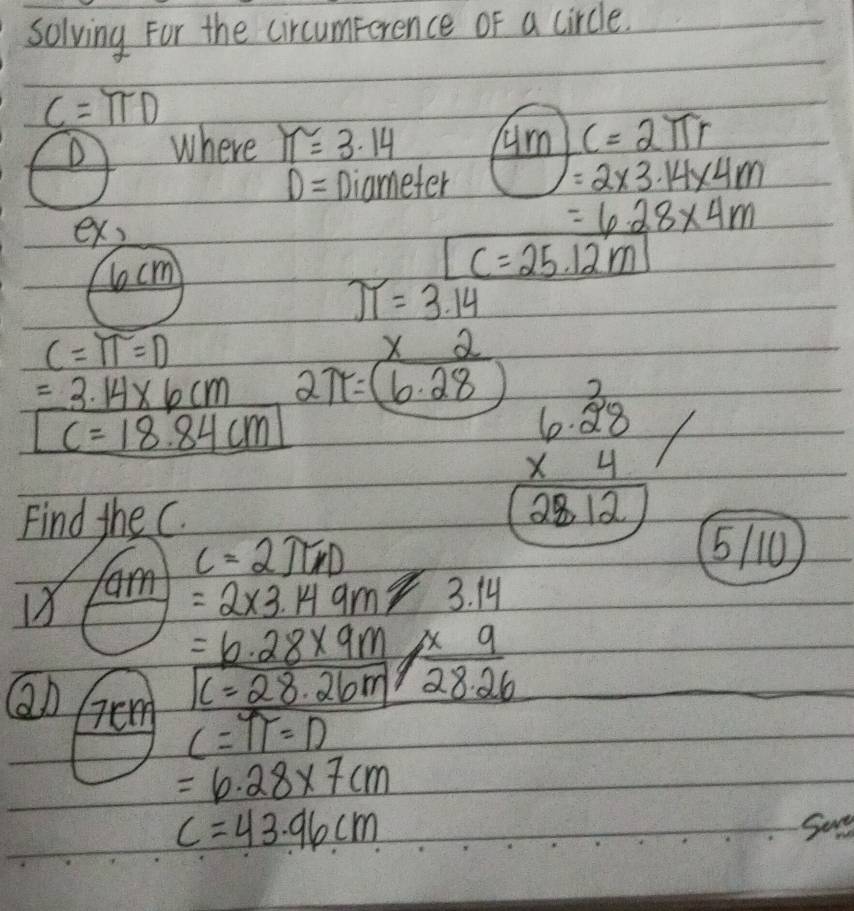 Solving For the circumference OF a circle.
C = πD
D Where π = 3.14
D = Diameter
4m C = 2πr
= 2x3.14x4m
= 6.28x4m
C = 25.12m
ex,
6cm
π = 3.14
x 2
2π = 6.28
C = π = D
= 3.14x6cm
C = 18.84cm
2
6.28
x 4
2812
Find the C.
5/10
1) 9m C = 2πD
= 2x3.14 9m
= 6.28x9m
C = 28.26m
3.14
x 9
28.26
2) 7cm
C = π = D
= 6.28x7cm
C = 43.96cm